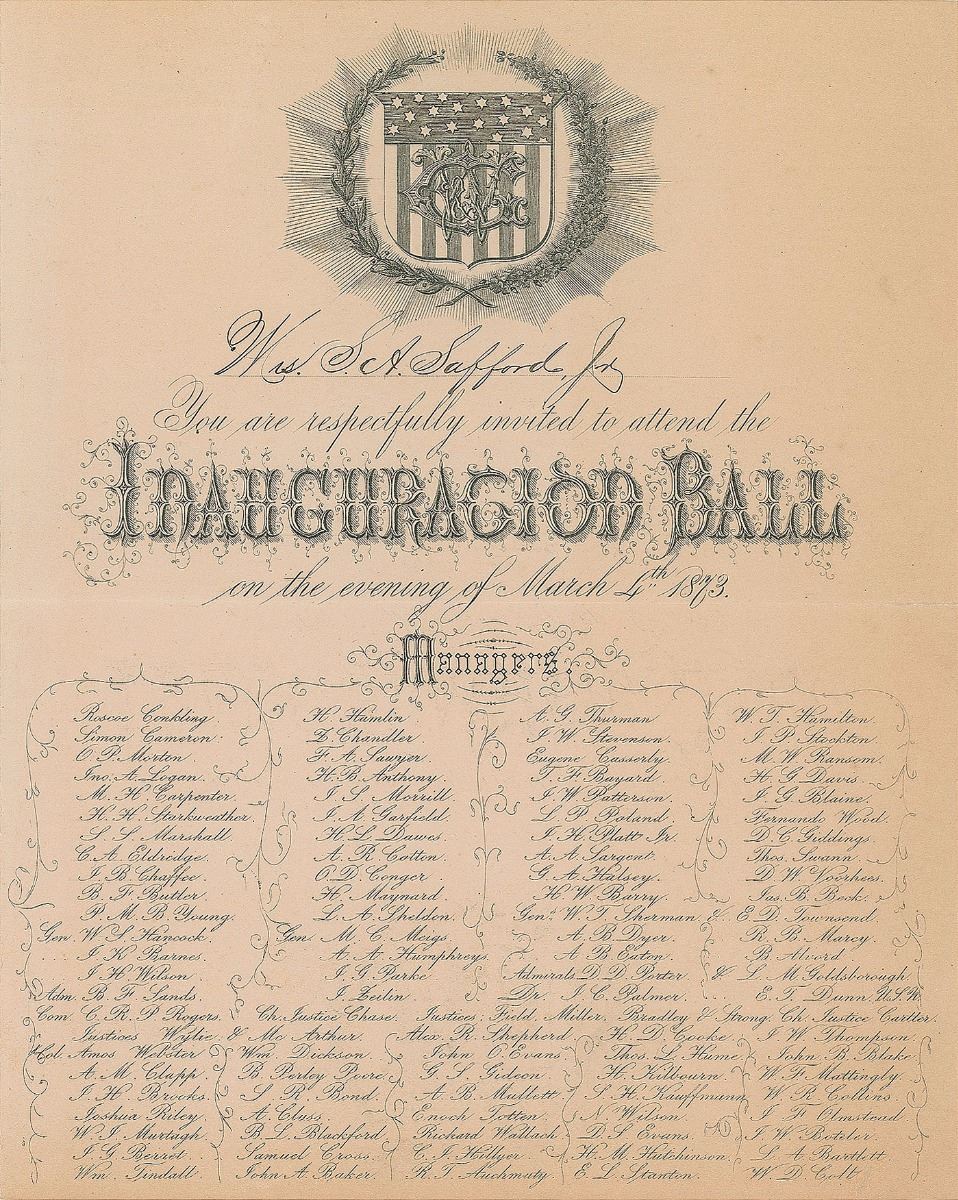 Mrs. S. A. Safford, Jr
You are respectfully invited to attend the
INAUGURATION BALL
on the evening of March 4th 1873.
Managers.
Roscoe Conkling. H. Hamlin. A. G. Thurman W. T. Hamilton.
Simon Cameron: Z. Chandler J. W. Stevenson. J. P. Stockton
O. P. Morton F. A. Sawyer. Eugene Casserly M. W. Ransom.
Jno. A. Logan. H. B. Anthony. T. F. Bayard. H. G. Davis.
M. H. Carpenter. J. S. Morrill. J. W. Patterson. J. G. Blaine.
H. H. Starkweather. J. A. Garfield. L. P. Poland. Fernando Wood.
S. S. Marshall. H. L. Dawes. J. H. Platt Jr. D. C. Giddings.
C. A. Eldredge. A. R. Cotton. A. A. Sargent. Thos. Swann.
J. B. Chaffee. O. D. Conger. G. A. Halsey. D. W. Voorhees.
B. F. Butler. H. Maynard. H. W. Barry. Jas. B. Beck.
P. M. B. Young. L. A. Sheldon. Genls. W. T. Sherman & E. D. Townsend.
Gen. W. S. Hancock. Gen. M. C. Meigs. A. B. Dyer. R. B. Marcy.
J. K. Barnes. A. A. Humphreys. A. B. Eaton. B. Alvord.
J. H. Wilson. J. G. Parke. Admirals. D. D. Porter. & L. M. Goldsborough.
Adm. B. F. Sands. J. Zeilin. Dr. J. C. Palmer. E. T. Dunn, U.S.N.
Com. C. R. P. Rogers. Ch. Justice Chase. Justices: Field, Miller, Bradley & Strong. Ch. Justice Cartter.
Justices Wylie & Mc Arthur. Alex. R. Shepherd. H. D. Cooke. J. W. Thompson.
Col. Amos Webster. Wm. Dickson. John O. Evans. Thos. L. Hume. John B. Blake.
A. M. Clapp. B. Perley Poore. G. S. Gideon. H. Kilbourn. W. F. Mattingly.
J. H. Brooks. S. R. Bond. A. B. Mullett. S. H. Kauffmann. W. R. Collins.
Joshua Riley. A. Cluss. Enoch Totten. N. Wilson. J. F. Olmstead.
W. J. Murtagh. B. L. Blackford. Richard Wallach. D. S. Evans. J. W. Boteler.
J. G. Berret. Samuel Cross. C. J. Hillyer. H. M. Hutchinson. L. A. Bartlett.
Wm. Tindall. John A. Baker. R. T. Auchmuty. E. L. Stanton. W. D. Colt